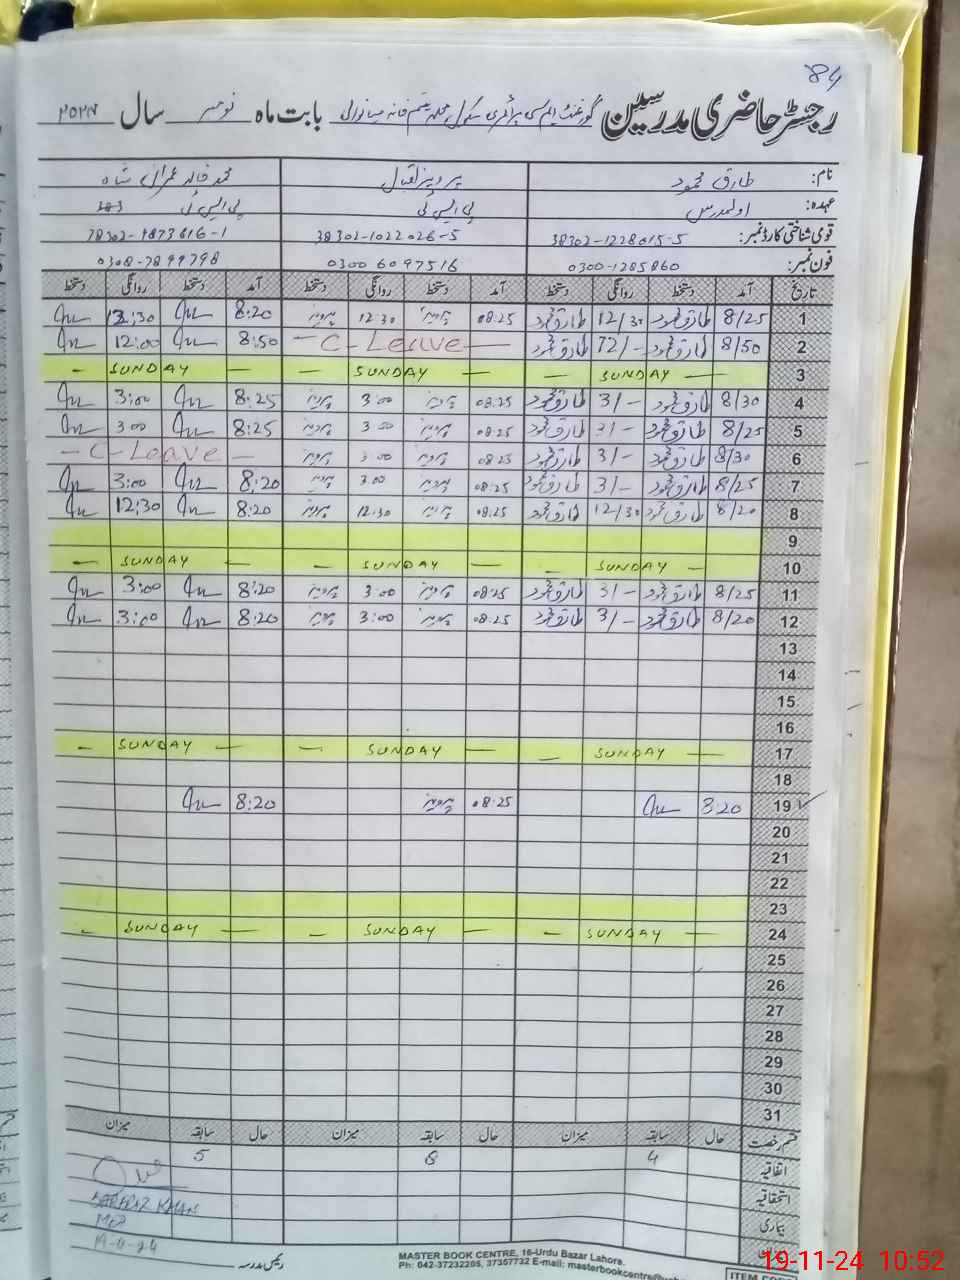 84
رجسٹر حاضری مدرسین گورنمنٹ ایم سی پرائمری سکول محلہ یتیم خانہ میانوالی بابت ماہ نومبر سال ٢٠٢٤
نام: طارق محمود پرویز اقبال محمد خالد عمران شاہ
عہدہ: اول مدرس پی ایس ٹی پی ایس ٹی
قومی شناختی کارڈ نمبر: 38302-1228015-5 38302-1022026-5 38302-9873616-1
فون نمبر: 0300-1285860 0300 6097516 0308-7899798
تاریخ آمد دستخط روانگی دستخط آمد دستخط روانگی دستخط آمد دستخط روانگی دستخط
1 8/25 طارق محمود 12/30 طارق محمود 08:25 پرویز 12 30 پرویز 8:20 12:30
2 8/50 طارق محمود 12/- طارق محمود — C - Leave — 8:50 12:00
3 — SUNDAY — — SUNDAY — — SUNDAY —
4 8/30 طارق محمود 3/- طارق محمود 08:25 پرویز 3 00 پرویز 8:25 3:00
5 8/25 طارق محمود 3/- طارق محمود 08:25 پرویز 3 00 پرویز 8:25 3:00
6 8/30 طارق محمود 3/- طارق محمود 08:25 پرویز 3 00 پرویز — C - Leave —
7 8/25 طارق محمود 3/- طارق محمود 08:25 پرویز 3 00 پرویز 8:20 3:00
8 8/20 طارق محمود 12/30 طارق محمود 08:25 پرویز 12:30 پرویز 8:20 12:30
9
10 — SUNDAY — — SUNDAY — — SUNDAY —
11 8/25 طارق محمود 3/- طارق محمود 08:25 پرویز 3:00 پرویز 8:20 3:00
12 8/20 طارق محمود 3/- طارق محمود 08:25 پرویز 3:00 پرویز 8:20 3:00
13
14
15
16
17 — SUNDAY — — SUNDAY — — SUNDAY —
18
19 8:20 08:25 پرویز 8:20
20
21
22
23
24 — SUNDAY — — SUNDAY — — SUNDAY —
25
26
27
28
29
30
31
قسم رخصت حال سابقہ میزان حال سابقہ میزان حال سابقہ میزان
اتفاقیہ 4 8 5
استحقاقیہ
بیماری
SARFRAZ KHAN
رئیس مدرسہ
MASTER BOOK CENTRE, 16-Urdu Bazar Lahore.
Ph: 042-37232205, 37357732 E-mail: masterbookcentre@
ITEM CO
19-11-24 10:52